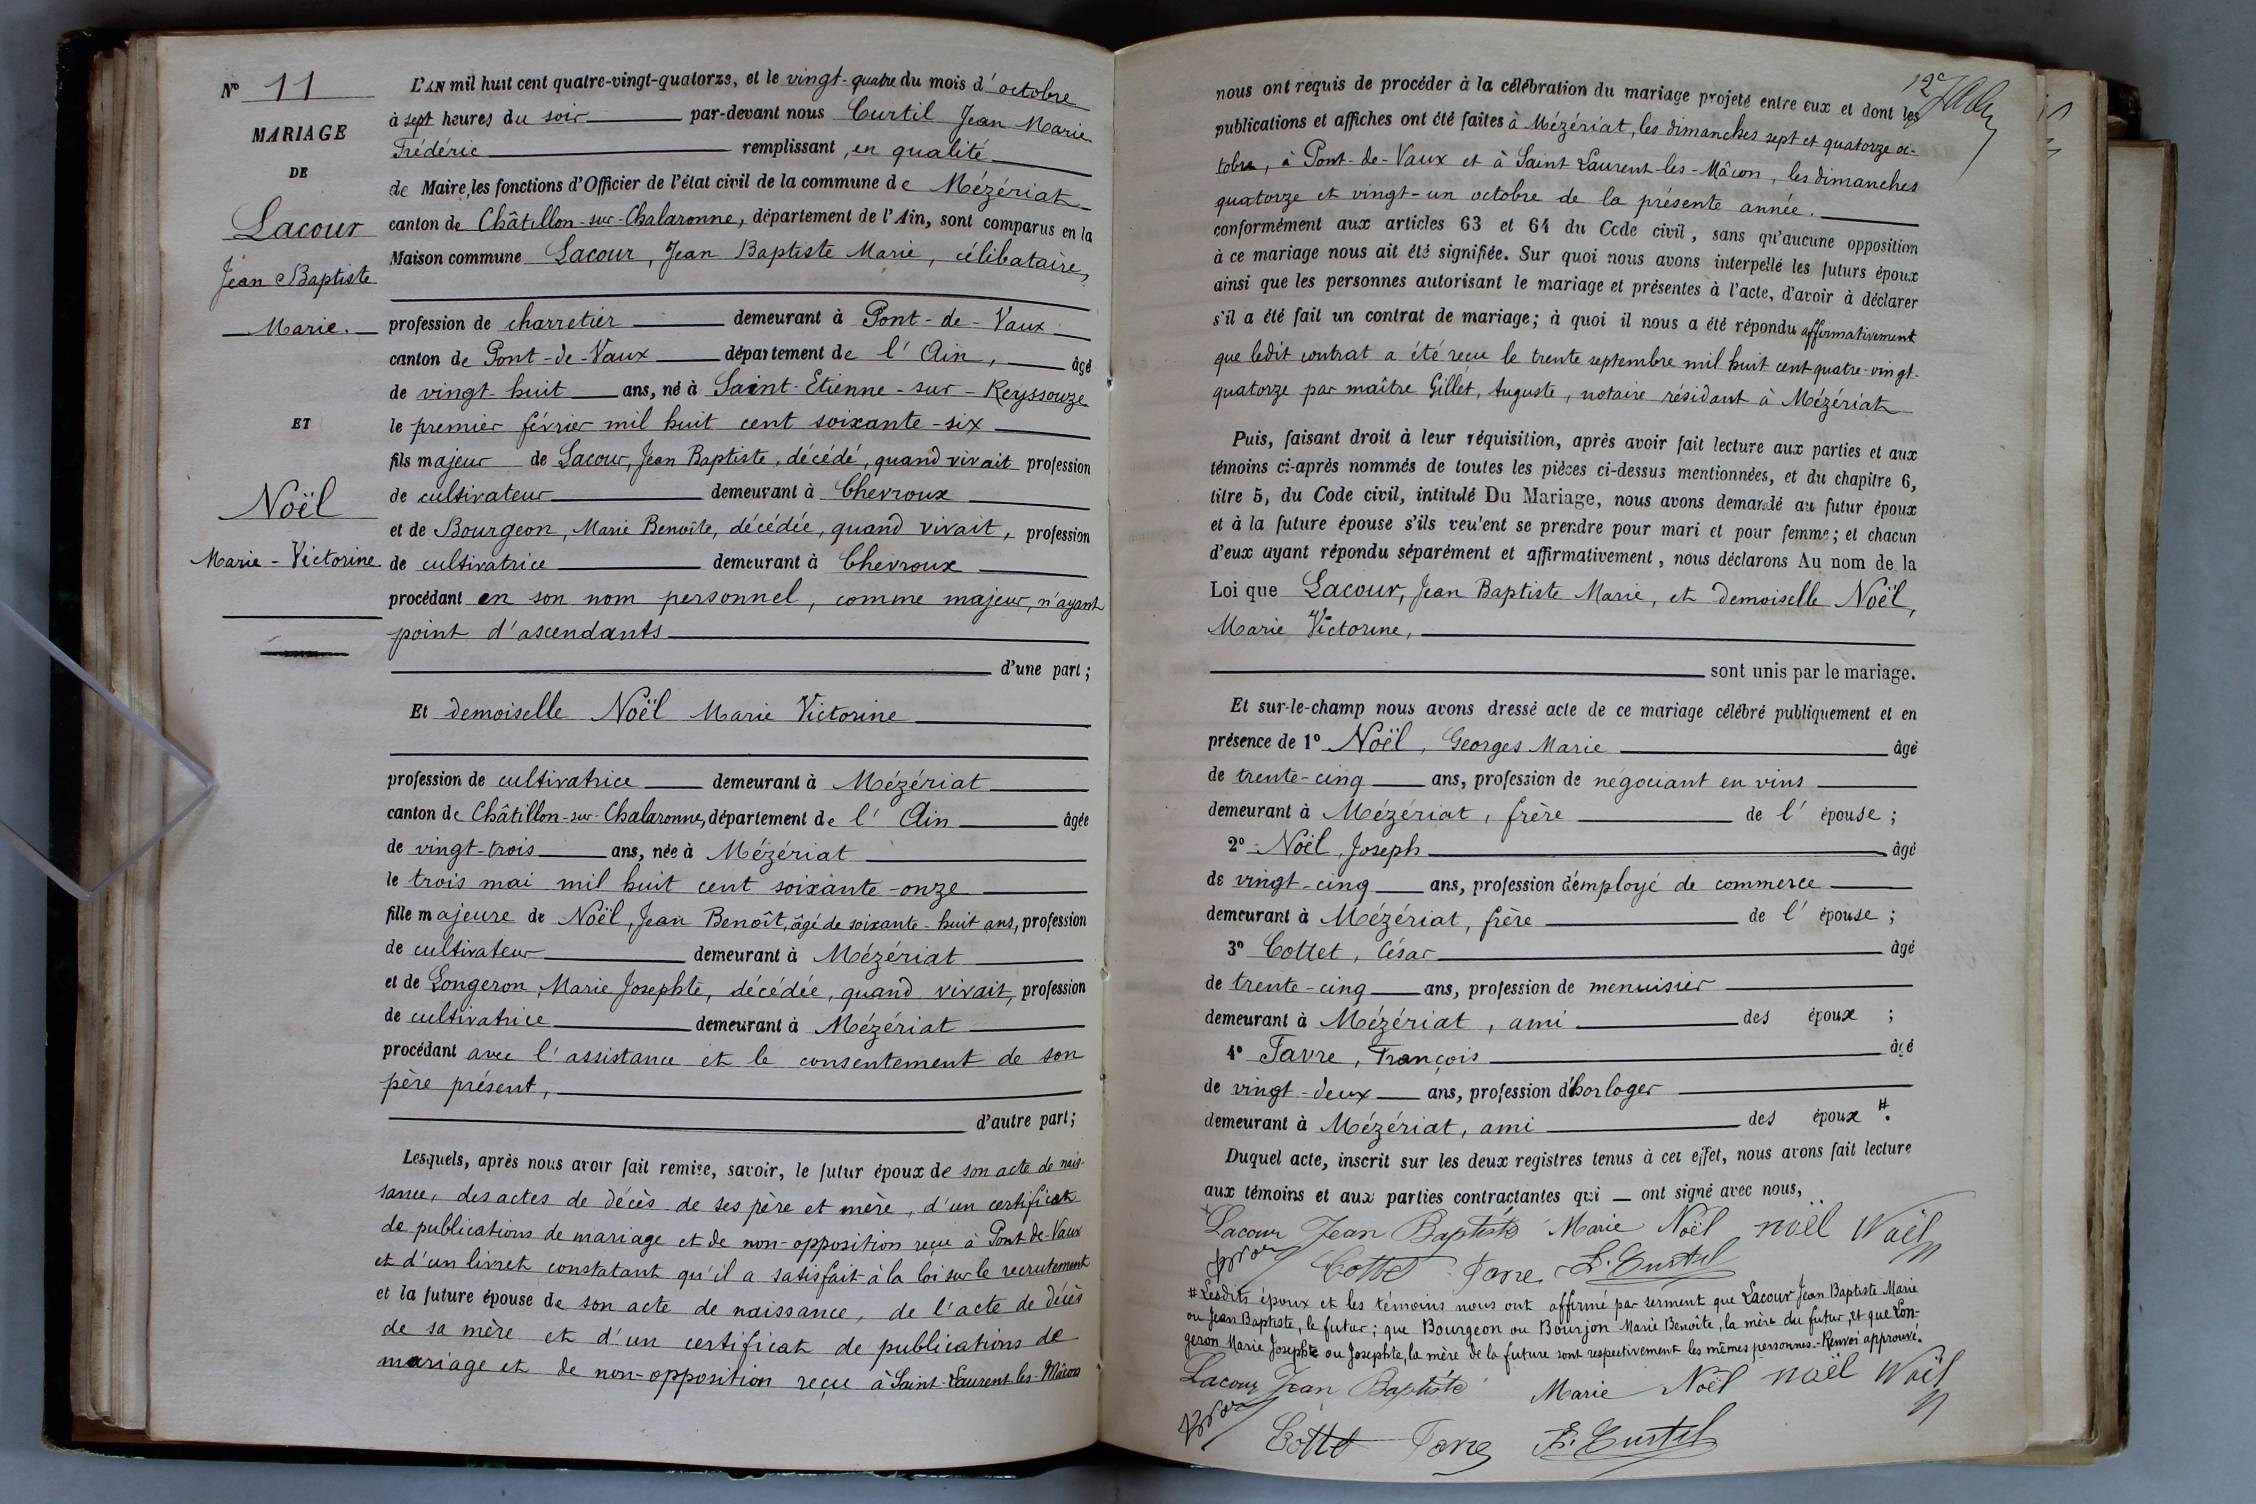 N° 11
MARIAGE
DE
Lacour
Jean Baptiste
Marie.
ET
Noël
Marie-Victorine
L'AN mil huit cent quatre-vingt-quatorze, et le vingt-quatre du mois d'octobre
à sept heures du soir par-devant nous Curtil Jean Marie
Frédéric remplissant, en qualité
de Maire, les fonctions d'Officier de l'état civil de la commune de Mézériat
canton de Châtillon-sur-Chalaronne, département de l'Ain, sont comparus en la
Maison commune Lacour, Jean Baptiste Marie, célibataire,
profession de charretier demeurant à Pont-de-Vaux
canton de Pont-de-Vaux département de l'Ain, âgé
de vingt-huit ans, né à Saint-Etienne-sur-Reyssouze
le premier février mil huit cent soixante-six
fils majeur de Lacour, Jean Baptiste, décédé, quand vivait profession
de cultivateur demeurant à Chevroux
et de Bourgeon, Marie Benoîte, décédée, quand vivait, profession
de cultivatrice demeurant à Chevroux
procédant en son nom personnel, comme majeur, n'ayant
point d'ascendants
d'une part;
Et demoiselle Noël Marie Victorine
profession de cultivatrice demeurant à Mézériat
canton de Châtillon-sur-Chalaronne, département de l'Ain âgée
de vingt-trois ans, née à Mézériat
le trois mai mil huit cent soixante-onze
fille majeure de Noël, Jean Benoît, âgé de soixante-huit ans, profession
de cultivateur demeurant à Mézériat
et de Longeron, Marie Josephte, décédée, quand vivait, profession
de cultivatrice demeurant à Mézériat
procédant avec l'assistance et le consentement de son
père présent,
d'autre part;
Lesquels, après nous avoir fait remise, savoir, le futur époux de son acte de nais-
sance, des actes de décès de ses père et mère, d'un certificat
de publications de mariage et de non-opposition reçu à Pont-de-Vaux
et d'un livret constatant qu'il a satisfait à la loi sur le recrutement
et la future épouse de son acte de naissance, de l'acte de décès
de sa mère et d'un certificat de publications de
mariage et de non-opposition reçu à Saint-Laurent-les-Mâcon
nous ont requis de procéder à la célébration du mariage projeté entre eux et dont les
publications et affiches ont été faites à Mézériat, les dimanches sept et quatorze oc-
tobre, à Pont-de-Vaux et à Saint Laurent-les-Mâcon, les dimanches
quatorze et vingt-un octobre de la présente année.
conformément aux articles 63 et 64 du Code civil, sans qu'aucune opposition
à ce mariage nous ait été signifiée. Sur quoi nous avons interpellé les futurs époux
ainsi que les personnes autorisant le mariage et présentes à l'acte, d'avoir à déclarer
s'il a été fait un contrat de mariage; à quoi il nous a été répondu affirmativement
que ledit contrat a été reçu le trente septembre mil huit cent quatre-vingt-
quatorze par maître Gillet, Auguste, notaire résidant à Mézériat
Puis, faisant droit à leur réquisition, après avoir fait lecture aux parties et aux
témoins ci-après nommés de toutes les pièces ci-dessus mentionnées, et du chapitre 6,
titre 5, du Code civil, intitulé Du Mariage, nous avons demandé au futur époux
et à la future épouse s'ils veulent se prendre pour mari et pour femme; et chacun
d'eux ayant répondu séparément et affirmativement, nous déclarons Au nom de la
Loi que Lacour, Jean Baptiste Marie, et demoiselle Noël,
Marie Victorine,
sont unis par le mariage.
Et sur-le-champ nous avons dressé acte de ce mariage célébré publiquement et en
présence de 1° Noël, Georges Marie âgé
de trente-cinq ans, profession de négociant en vins
demeurant à Mézériat, frère de l'épouse;
2° Noël, Joseph âgé
de vingt-cinq ans, profession d'employé de commerce
demeurant à Mézériat, frère de l'épouse;
3° Cottet, César âgé
de trente-cinq ans, profession de menuisier
demeurant à Mézériat, ami des époux;
4° Favre, François âgé
de vingt-deux ans, profession d'horloger
demeurant à Mézériat, ami des époux #.
Duquel acte, inscrit sur les deux registres tenus à cet effet, nous avons fait lecture
aux témoins et aux parties contractantes qui — ont signé avec nous,
Lacour Jean Baptiste Marie Noël noël Noël
Cottet Favre F. Curtil
# Lesdits époux et les témoins nous ont affirmé par serment que Lacour Jean Baptiste Marie
ou Jean Baptiste, le futur; que Bourgeon ou Bourjon Marie Benoîte, la mère du futur, et que Lon-
geron Marie Josephte ou Josephte, la mère de la future sont respectivement les mêmes personnes.- Renvoi approuvé.
Lacour Jean Baptiste Marie Noël noël Noël
Cottet Favre F. Curtil